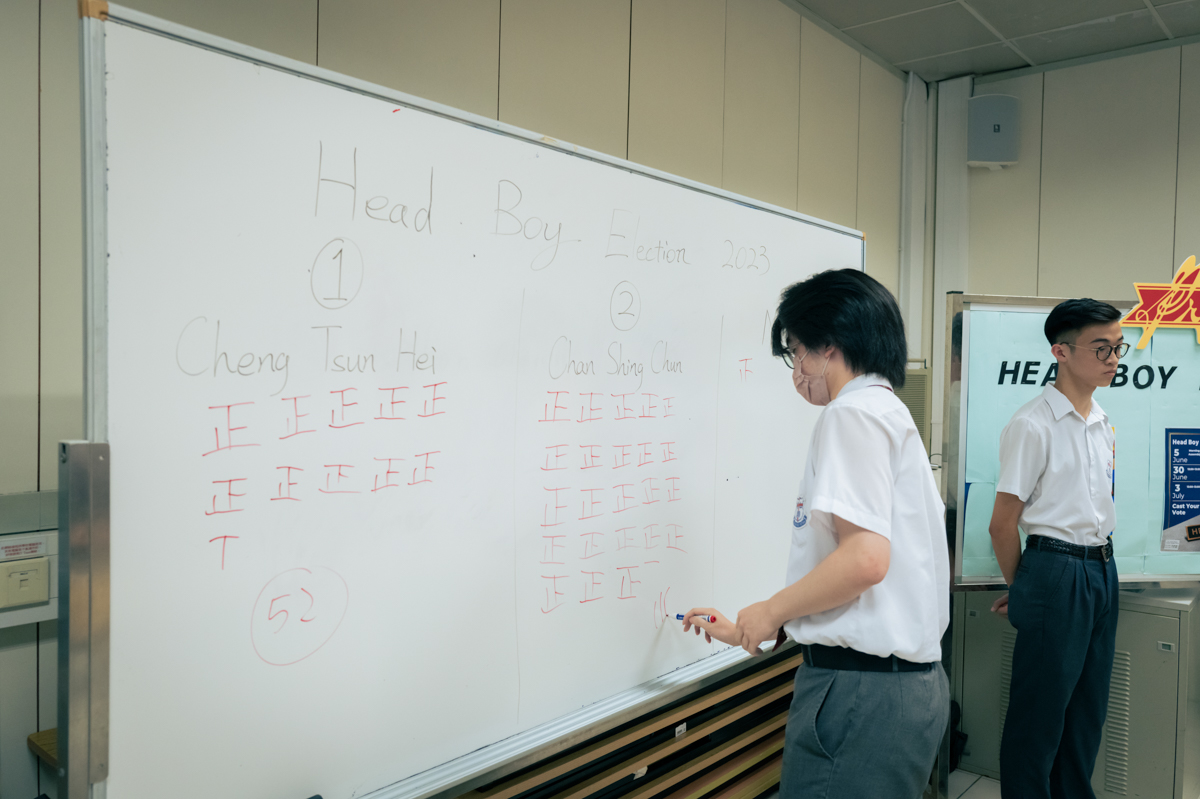 Head Boy Election 2023
①
Cheng Tsun Hei
正 正 正 正 正
正 正 正 正 正
T
52
②
Chan Shing Chun
正 正 正 正 正
正 正 正 正 正
正 正 正 正 正
正 正 正 正 正
正 正 正 一
正
HEA BOY
Head Boy
5
June
30
June
3
July
Cast Your
Vote